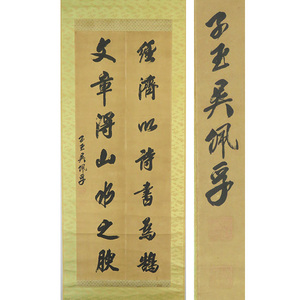 經濟以詩書為鵠
文章得山水之腴
子玉吳佩孚
子玉吳佩孚